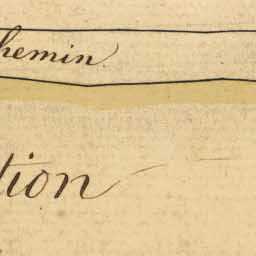 hemin
tion